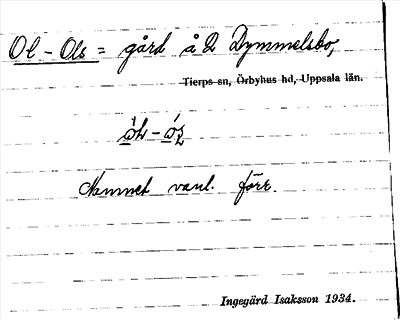 Ol - Ols = gård å 2 Dymmelsbo,
Tierps sn, Örbyhus hd, Uppsala län.
Namnet vanl. förr.
Ingegärd Isaksson 1934.